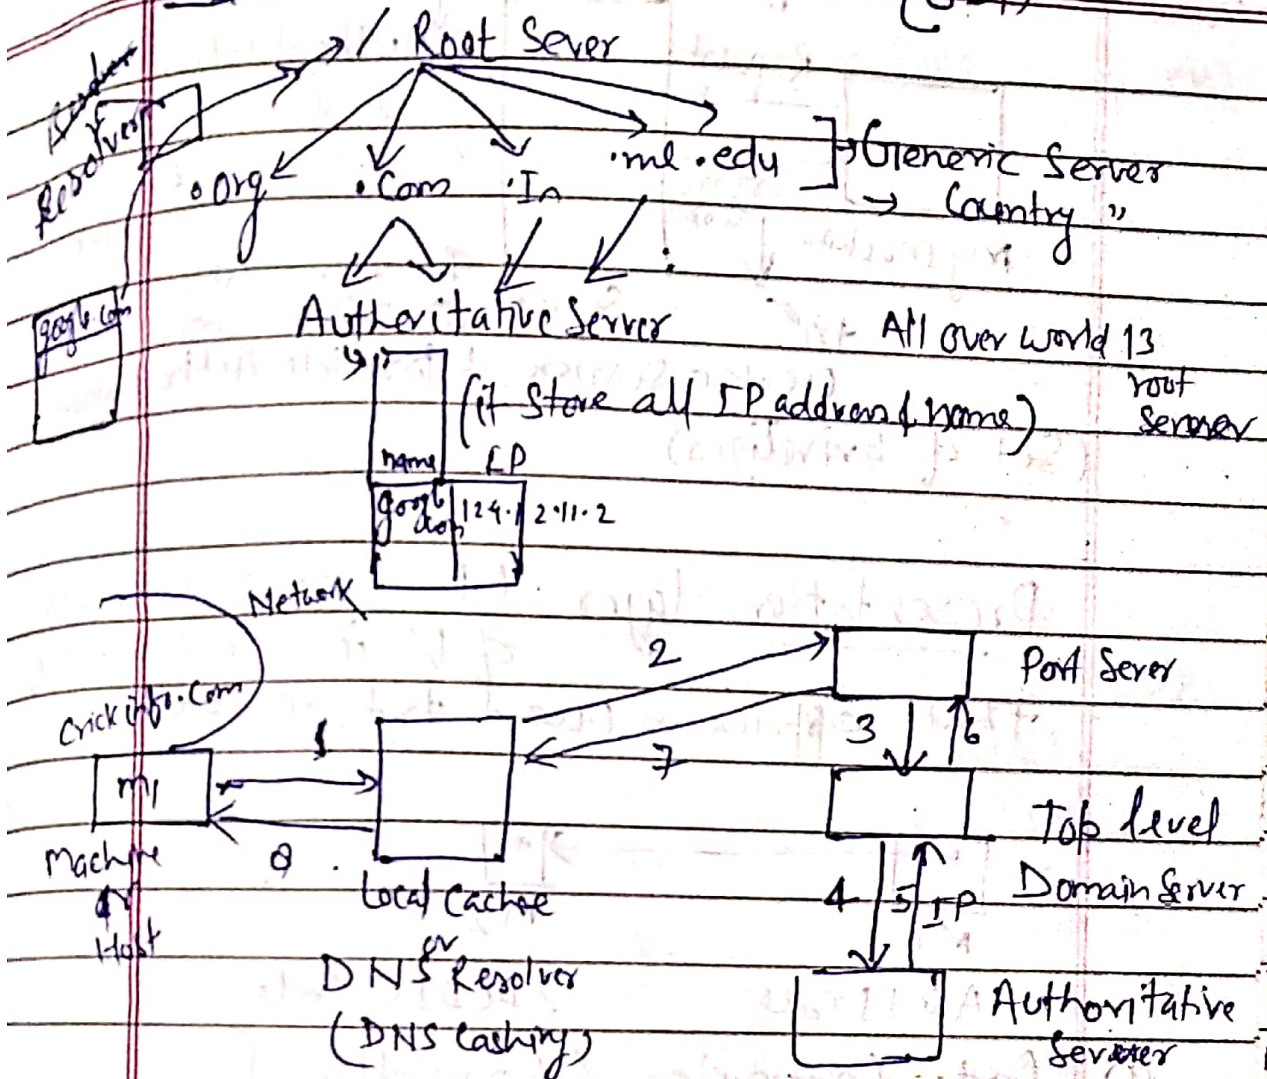 /. Root Sever
Resolver
.org .Com .In .ml .edu ] → Generic Server
→ Country "
google.com
Authoritative Server
All over world 13
root
Server
(it Store all IP address & name)
name IP
google
.com 124.12.11.2
Network
Crickinfo.Com
2
Port Sever
1
3 6
7
m1
Top level
Domain Server
8
Machine
or
Host
Local Cache
or
DNS Resolver
(DNS Cashing)
4 5 IP
Authoritative
Server